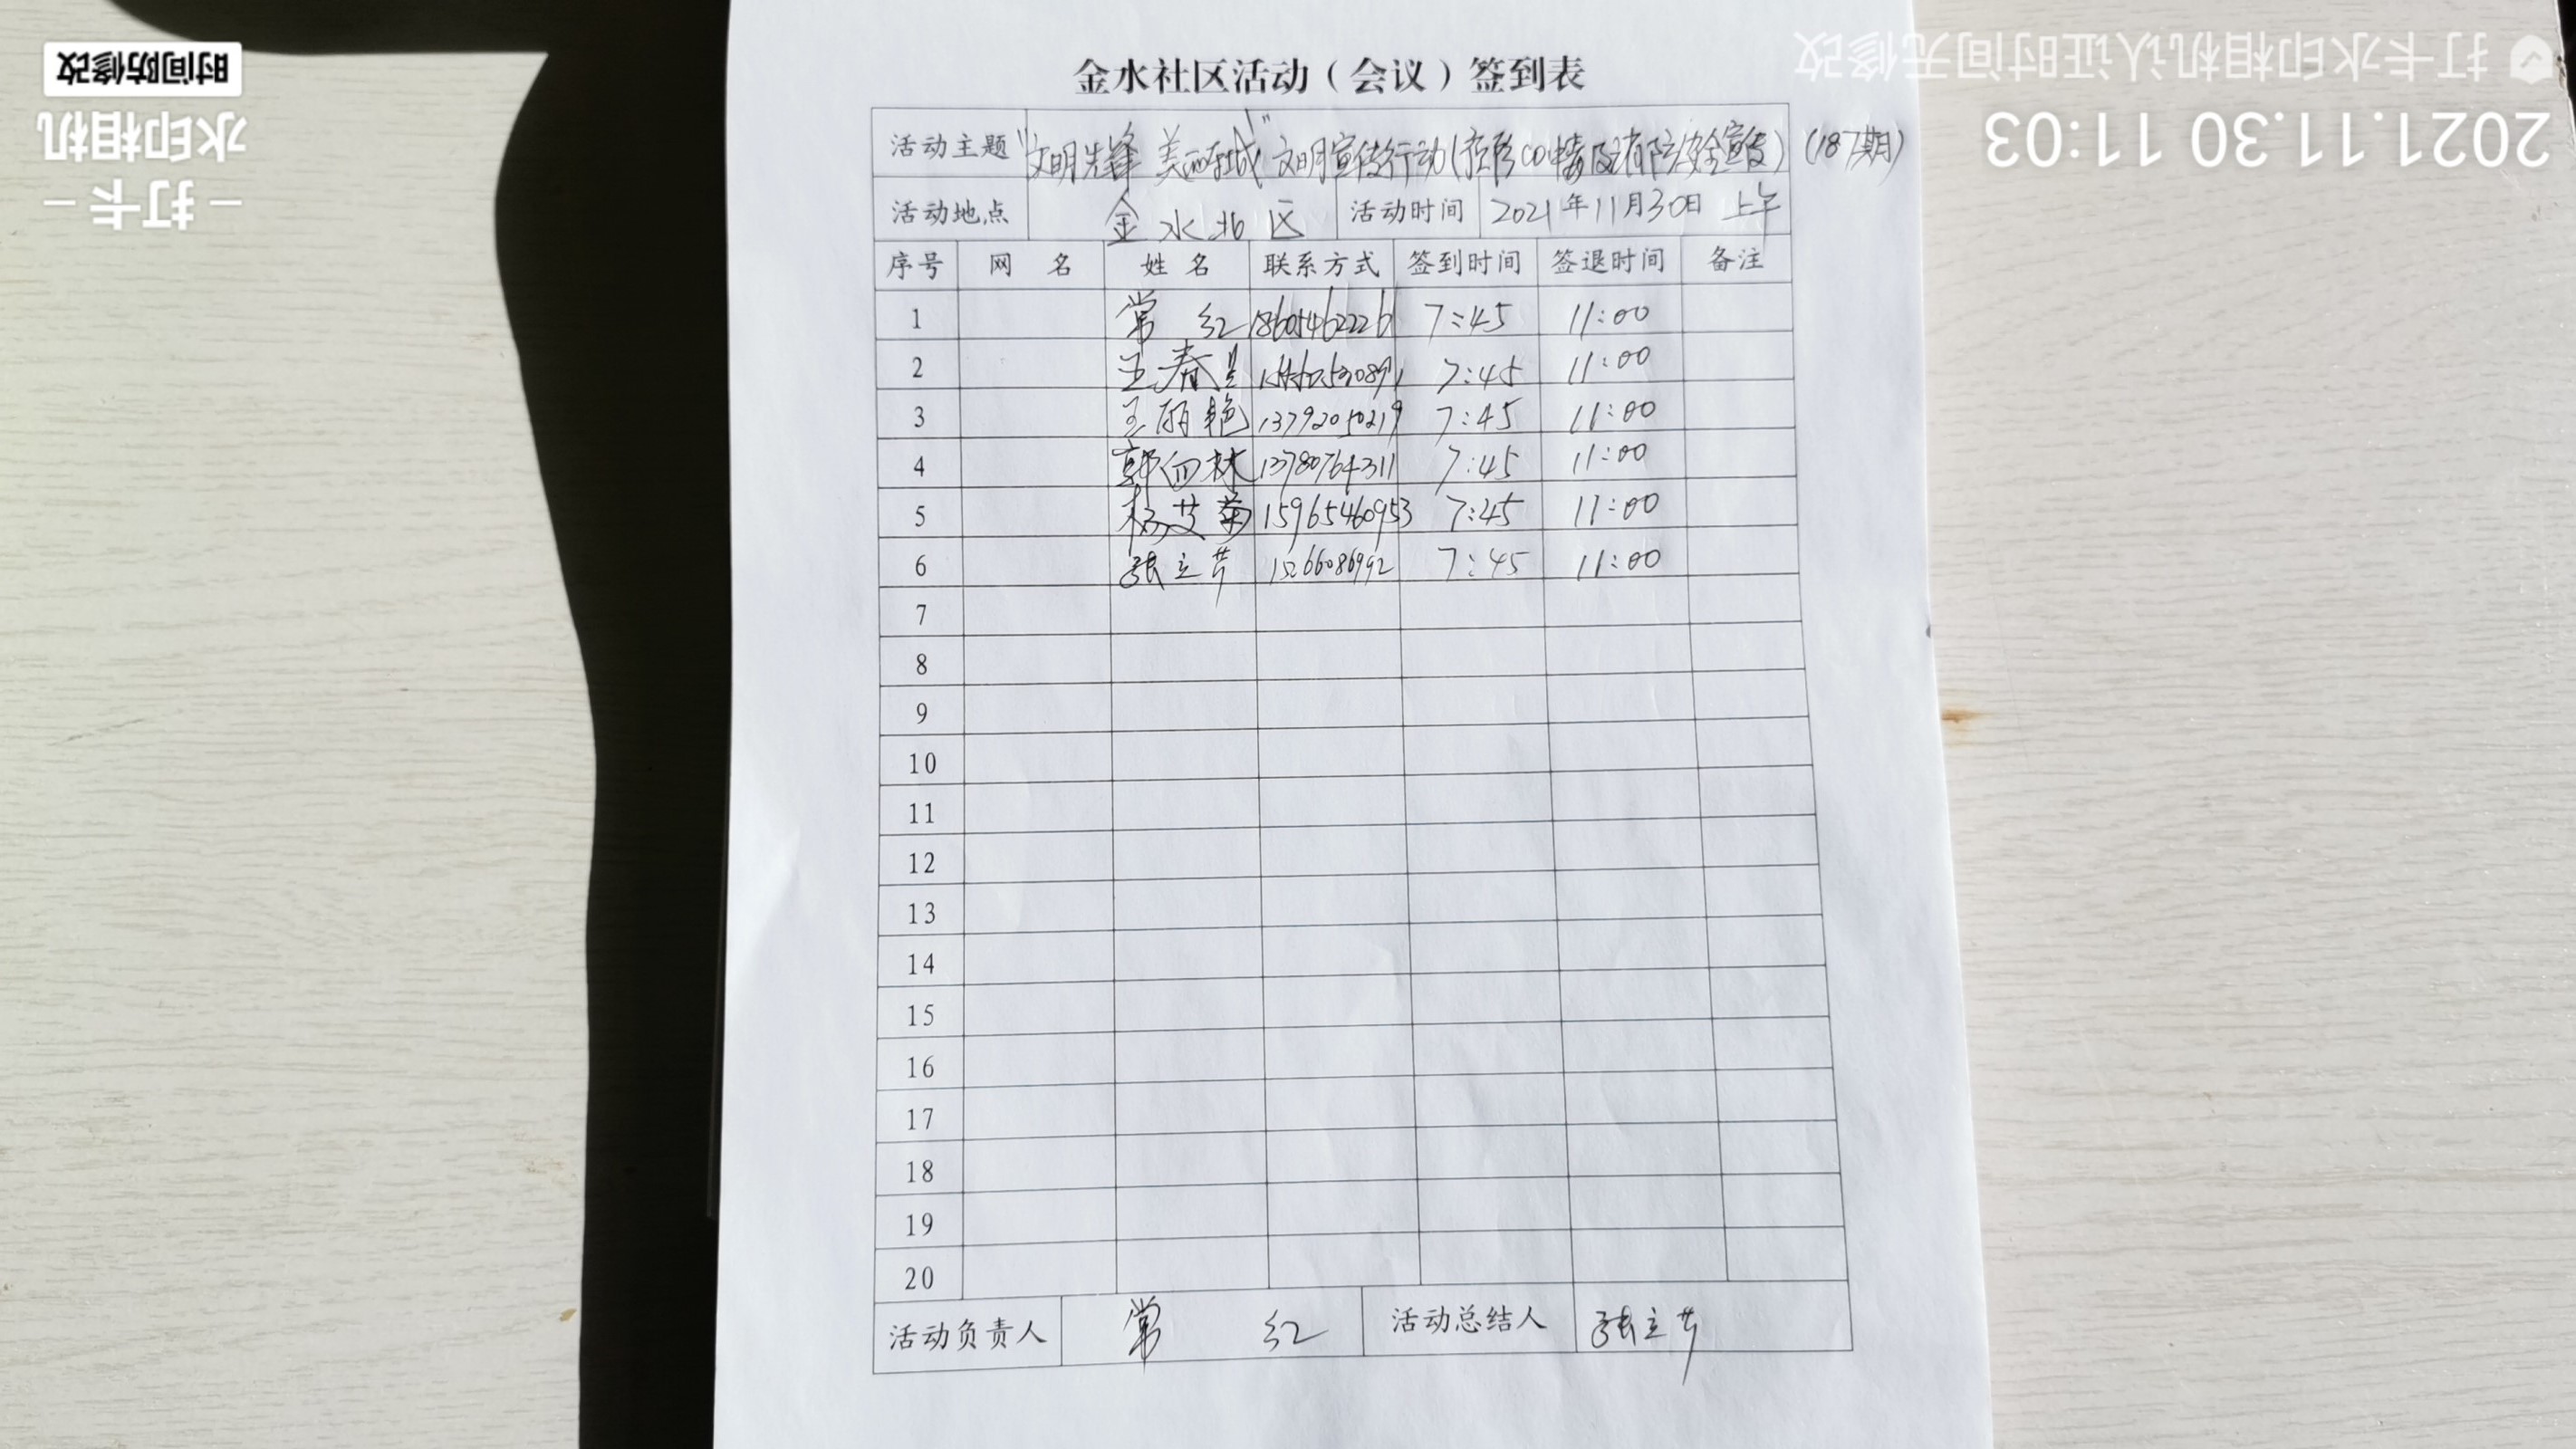 金水社区活动（会议）签到表
活动主题 "文明先锋 美丽东城" 文明宣传行动(预防CO中毒及消防安全宣传) (187期)
活动地点 金水北区 活动时间 2021年11月30日 上午
序号 网名 姓名 联系方式 签到时间 签退时间 备注
1 常红 18605462226 7:45 11:00
2 王春 7:45 11:00
3 王丽艳 13792050219 7:45 11:00
4 郭向林 13780764311 7:45 11:00
5 杨艾菊 15965460953 7:45 11:00
6 张立芹 7:45 11:00
7
8
9
10
11
12
13
14
15
16
17
18
19
20
活动负责人 常红 活动总结人 张立芹
打卡水印相机认证时间无修改
2021.11.30 11:03
- 打卡 -
水印相机
时间防修改